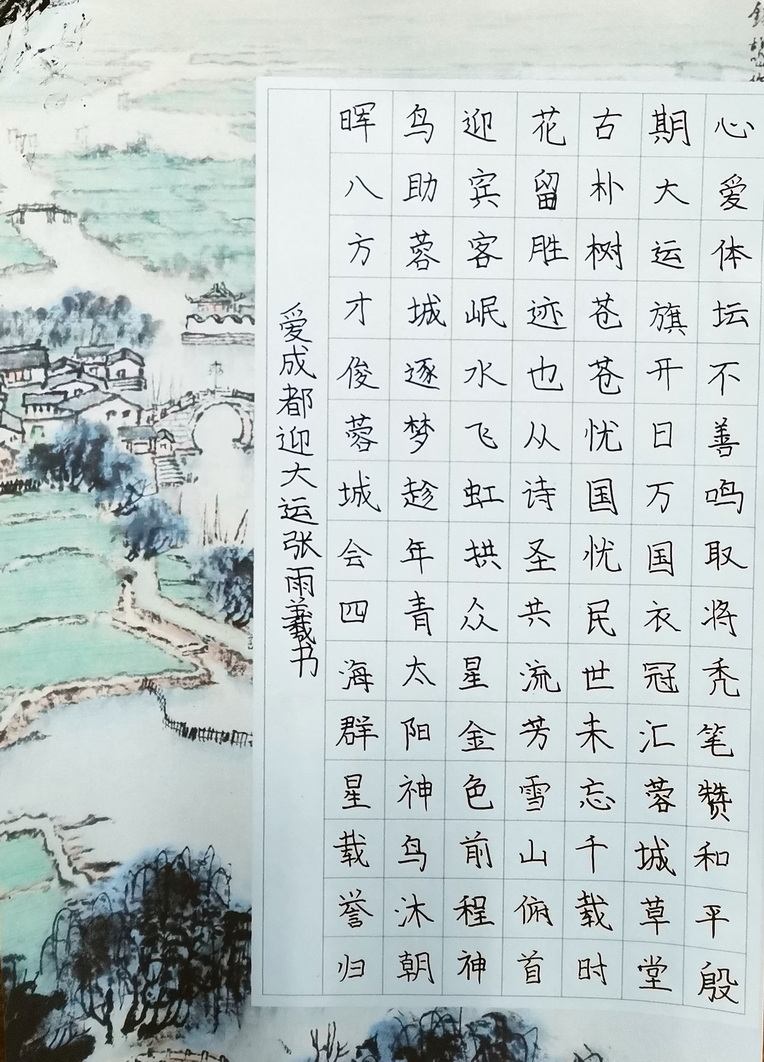 心爱体坛不善鸣取将秃笔赞和平殷
期大运旗开日万国衣冠汇蓉城草堂
古朴树苍苍忧国忧民世未忘千载时
花留胜迹也从诗圣共流芳雪山俯首
迎宾客岷水飞虹拱众星金色前程神
鸟助蓉城逐梦趁年青太阳神鸟沐朝
晖八方才俊蓉城会四海群星载誉归
爱成都迎大运张雨羲书